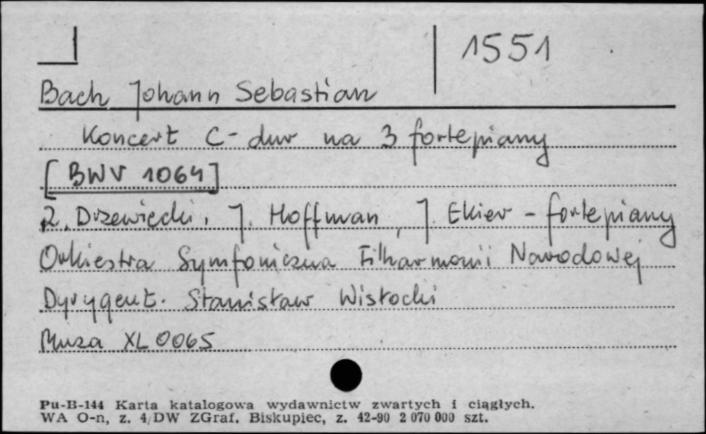 1551
Bach Johann Sebastian
Koncert C-dur na 3 fortepiany
[BWV 1064]
Z. Drzewiecki, J. Hoffman, J. Ekier - fortepiany
Orkiestra Symfoniczna Filharmonii Narodowej
Dyrygent. Stanisław Wisłocki
Muza XL 0065
Pu-B-144 Karta katalogowa wydawnictw zwartych i ciągłych.
WA O-n, z. 4/DW ZGraf. Biskupiec, z. 42-90 2 070 000 szt.